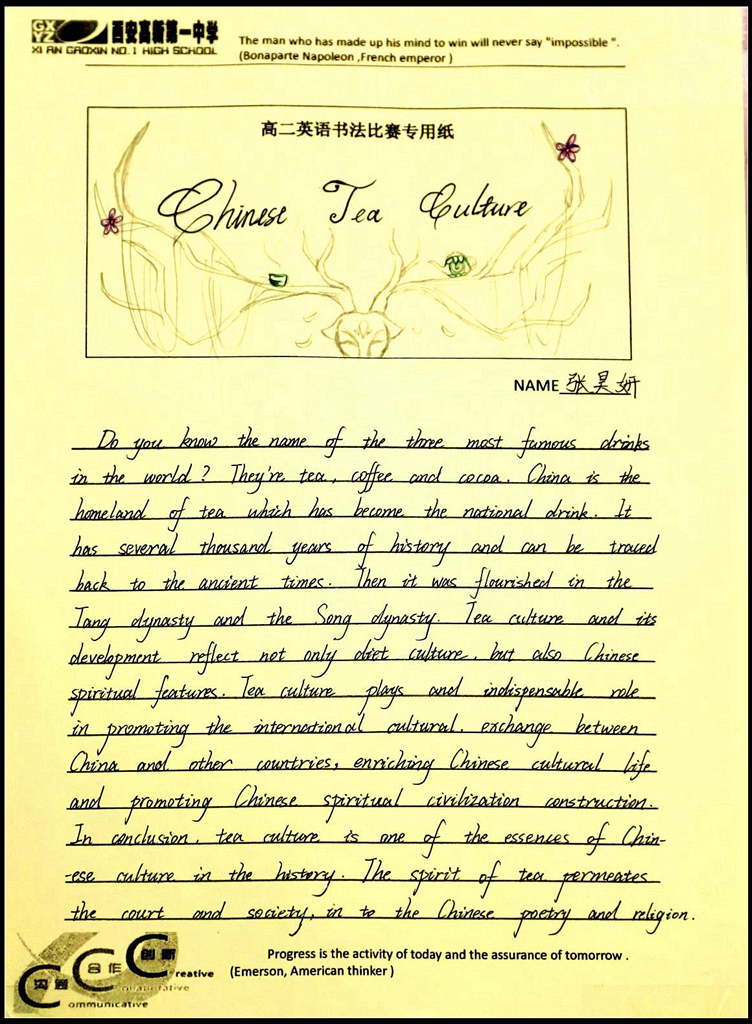 GX
YZ
西安高新第一中学
XI AN GAOXIN NO.1 HIGH SCHOOL
The man who has made up his mind to win will never say "impossible ".
(Bonaparte Napoleon ,French emperor )
高二英语书法比赛专用纸
Chinese Tea Culture
NAME 张昊妍
Do you know the name of the three most famous drinks
in the world? They're tea, coffee and cocoa. China is the
homeland of tea which has become the national drink. It
has several thousand years of history and can be traced
back to the ancient times. Then it was flourished in the
Tang dynasty and the Song dynasty. Tea culture and its
development reflect not only diet culture, but also Chinese
spiritual features. Tea culture plays and indispensable role
in promoting the international cultural, exchange between
China and other countries, enriching Chinese cultural life
and promoting Chinese spiritual civilization construction.
In conclusion, tea culture is one of the essences of Chin-
-ese culture in the history. The spirit of tea permeates
the court and society, in to the Chinese poetry and religion.
Progress is the activity of today and the assurance of tomorrow .
(Emerson, American thinker )
创新
Creative
合作
Collaborative
沟通
Communicative